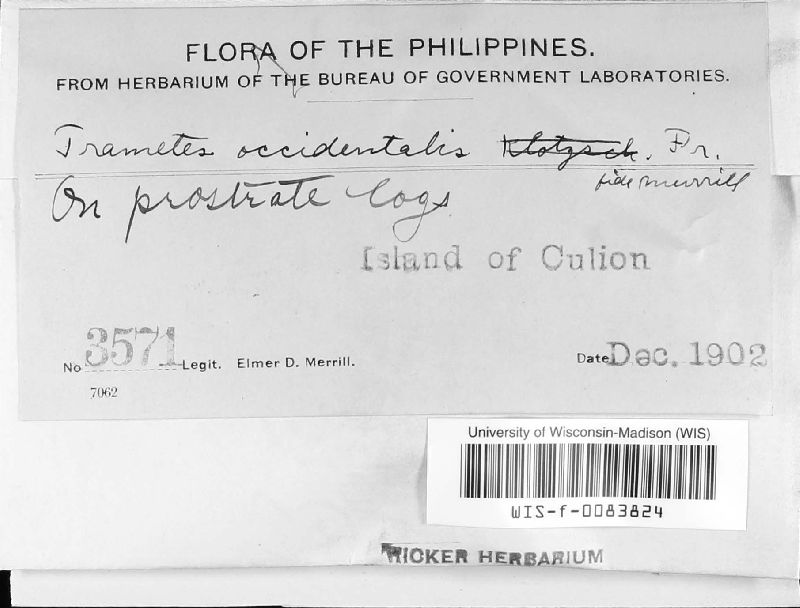 FLORA OF THE PHILIPPINES.
FROM HERBARIUM OF THE BUREAU OF GOVERNMENT LABORATORIES.
Trametes occidentalis Klotzsch. Fr.
fide Merrill
On prostrate logs
Island of Culion
No 3571 Legit. Elmer D. Merrill. Date Dec. 1902
7062
University of Wisconsin-Madison (WIS)
WIS-f-0083824
RICKER HERBARIUM